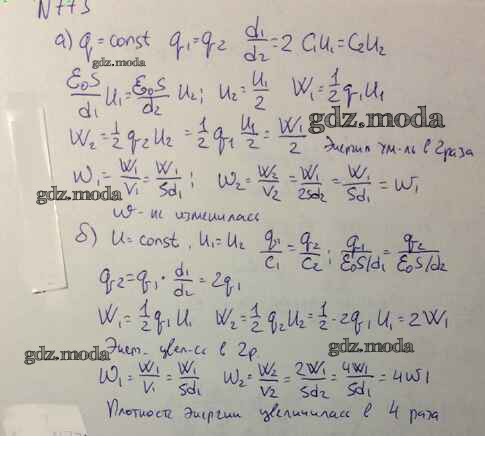 N773
а) q = const q₁ = q₂ d₁/d₂ = 2 C₁U₁ = C₂U₂
gdz.moda
ε₀S/d₁ U₁ = ε₀S/d₂ U₂; U₂ = U₁/2 W₁ = 1/2 q₁U₁
gdz.moda
W₂ = 1/2 q₂U₂ = 1/2 q₁ U₁/2 = W₁/2 Энергия ум-сь в 2 раза
w₁ = W₁/V₁ = W₁/Sd₁; w₂ = W₂/V₂ = W₁/2Sd₂ = W₁/Sd₁ = w₁
gdz.moda
w - не изменилась
б) U = const, U₁ = U₂ q₁/C₁ = q₂/C₂; q₁/ε₀S/d₁ = q₂/ε₀S/d₂
gdz.moda
q₂ = q₁ · d₁/d₂ = 2q₁
W₁ = 1/2 q₁U₁ W₂ = 1/2 q₂U₂ = 1/2 · 2q₁U₁ = 2W₁
Энер. увел-сь в 2р.
gdz.moda gdz.moda
w₁ = W₁/V₁ = W₁/Sd₁ w₂ = W₂/V₂ = 2W₁/Sd₂ = 4W₁/Sd₁ = 4w₁
Плотность энергии увеличилась в 4 раза